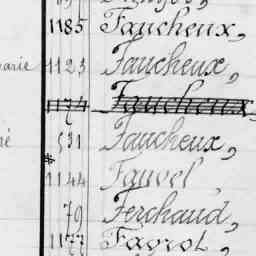 1185 Faucheux,
arie 1123 Faucheux,
174 Faucheux,
é 531 Faucheux,
1144 Fauvel,
79 Ferchaud,
1177 Fayrol,